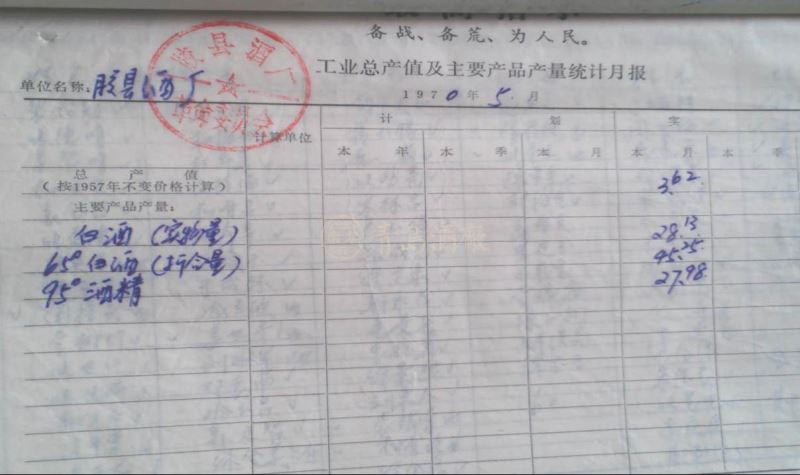 备战、备荒、为人民。
工业总产值及主要产品产量统计月报
单位名称:胶县酒厂
胶县酒厂
革命委员会
1970年5.月
计算单位
计 划 实
本 年 本 季 本 月 本 月 本 季
总产值
(按1957年不变价格计算) 3.62
主要产品产量:
白酒(实物量) 28.13
65°白酒(折合量) 45.25
95°酒精 27.98